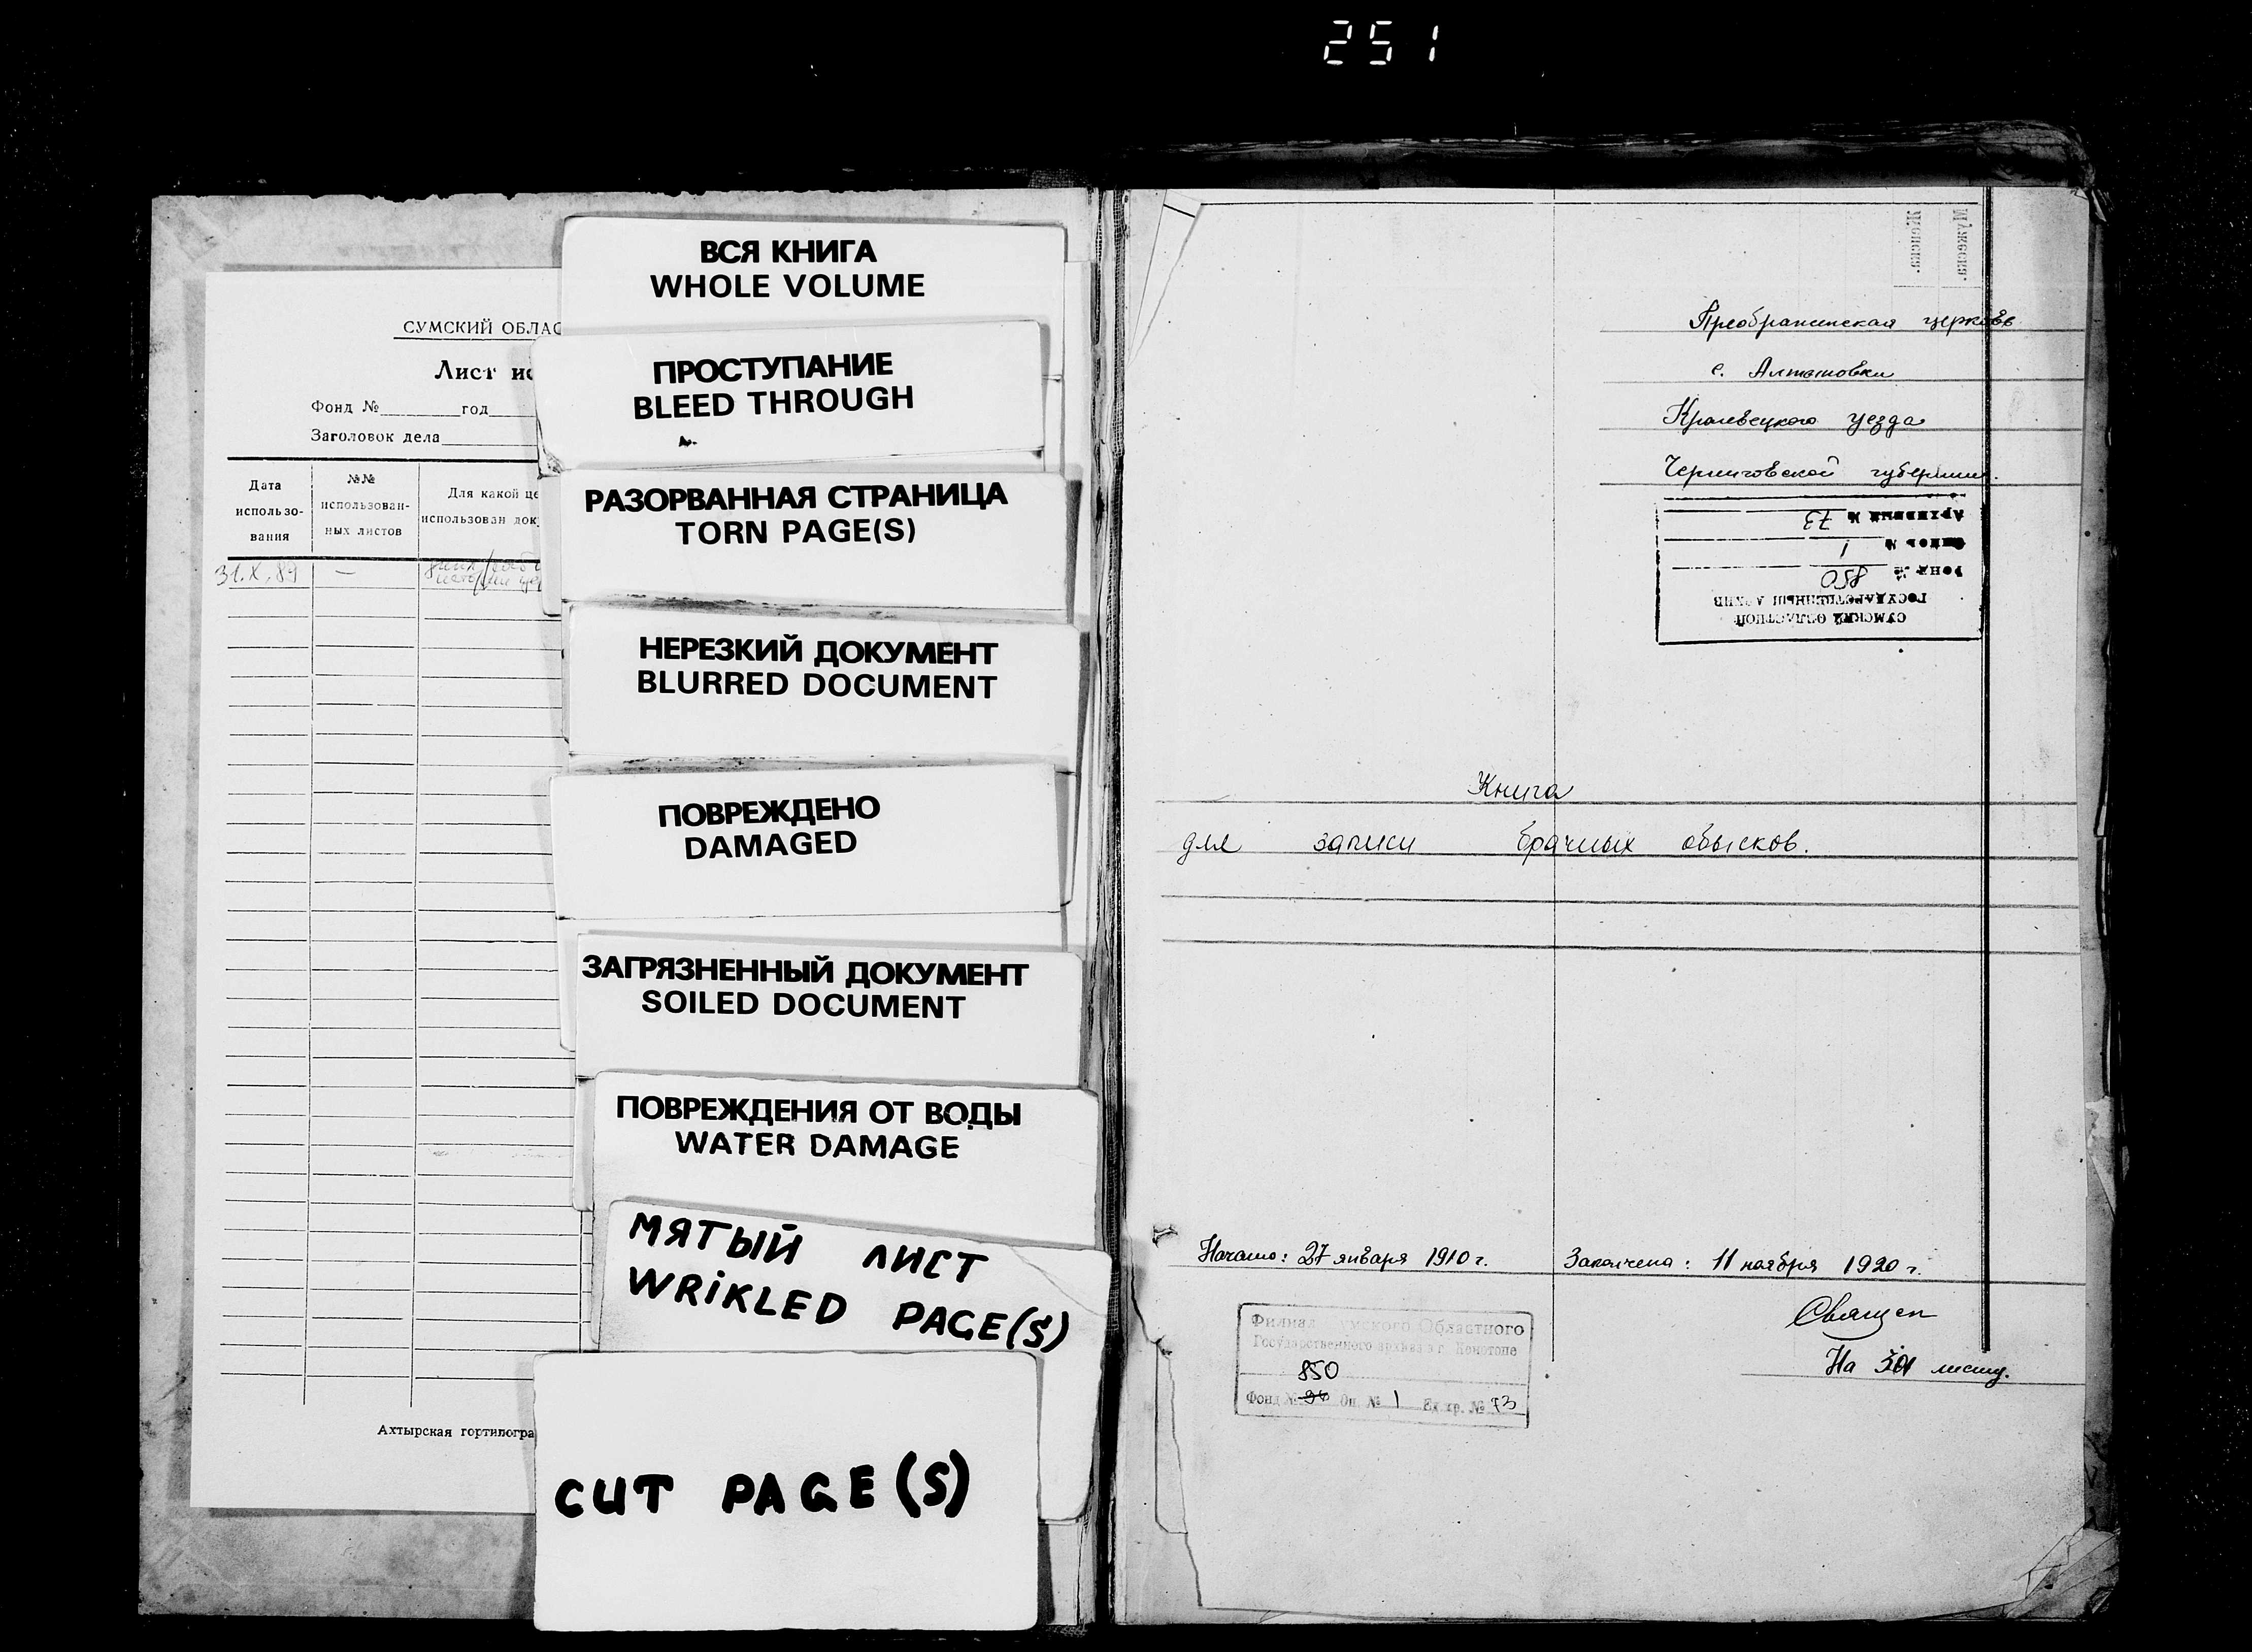 251
СУМСКИЙ ОБЛАС
Лист ис
Фонд № год
Заголовок дела
Дата использо- вания
№№ использован- ных листов
Для какой це использован док
31.X.89 —
Ахтырская гортипогра
ВСЯ КНИГА
WHOLE VOLUME
ПРОСТУПАНИЕ
BLEED THROUGH
РАЗОРВАННАЯ СТРАНИЦА
TORN PAGE(S)
НЕРЕЗКИЙ ДОКУМЕНТ
BLURRED DOCUMENT
ПОВРЕЖДЕНО
DAMAGED
ЗАГРЯЗНЕННЫЙ ДОКУМЕНТ
SOILED DOCUMENT
ПОВРЕЖДЕНИЯ ОТ ВОДЫ
WATER DAMAGE
МЯТЫЙ ЛИСТ
WRIKLED PAGE(S)
CUT PAGE(S)
Мужеска.
Женска.
Преображенская церковь
с. Алтыновки
Кролевецкого уезда
Черниговской губернии.
СУМСКИЙ ОБЛАСТНОЙ
ГОСУДАРСТВЕННЫЙ АРХИВ
ФОНД № 850
Опись № 1
Архивный № 73
Книга
для записи брачных обысков.
Начато: 27 января 1910 г. Закончена: 11 ноября 1920 г.
Священ
На листу.
Филиал Сумского Областного
Государственного архива в г. Конотопе
850
Фонд № Оп. № 1 Ед. хр. № 73